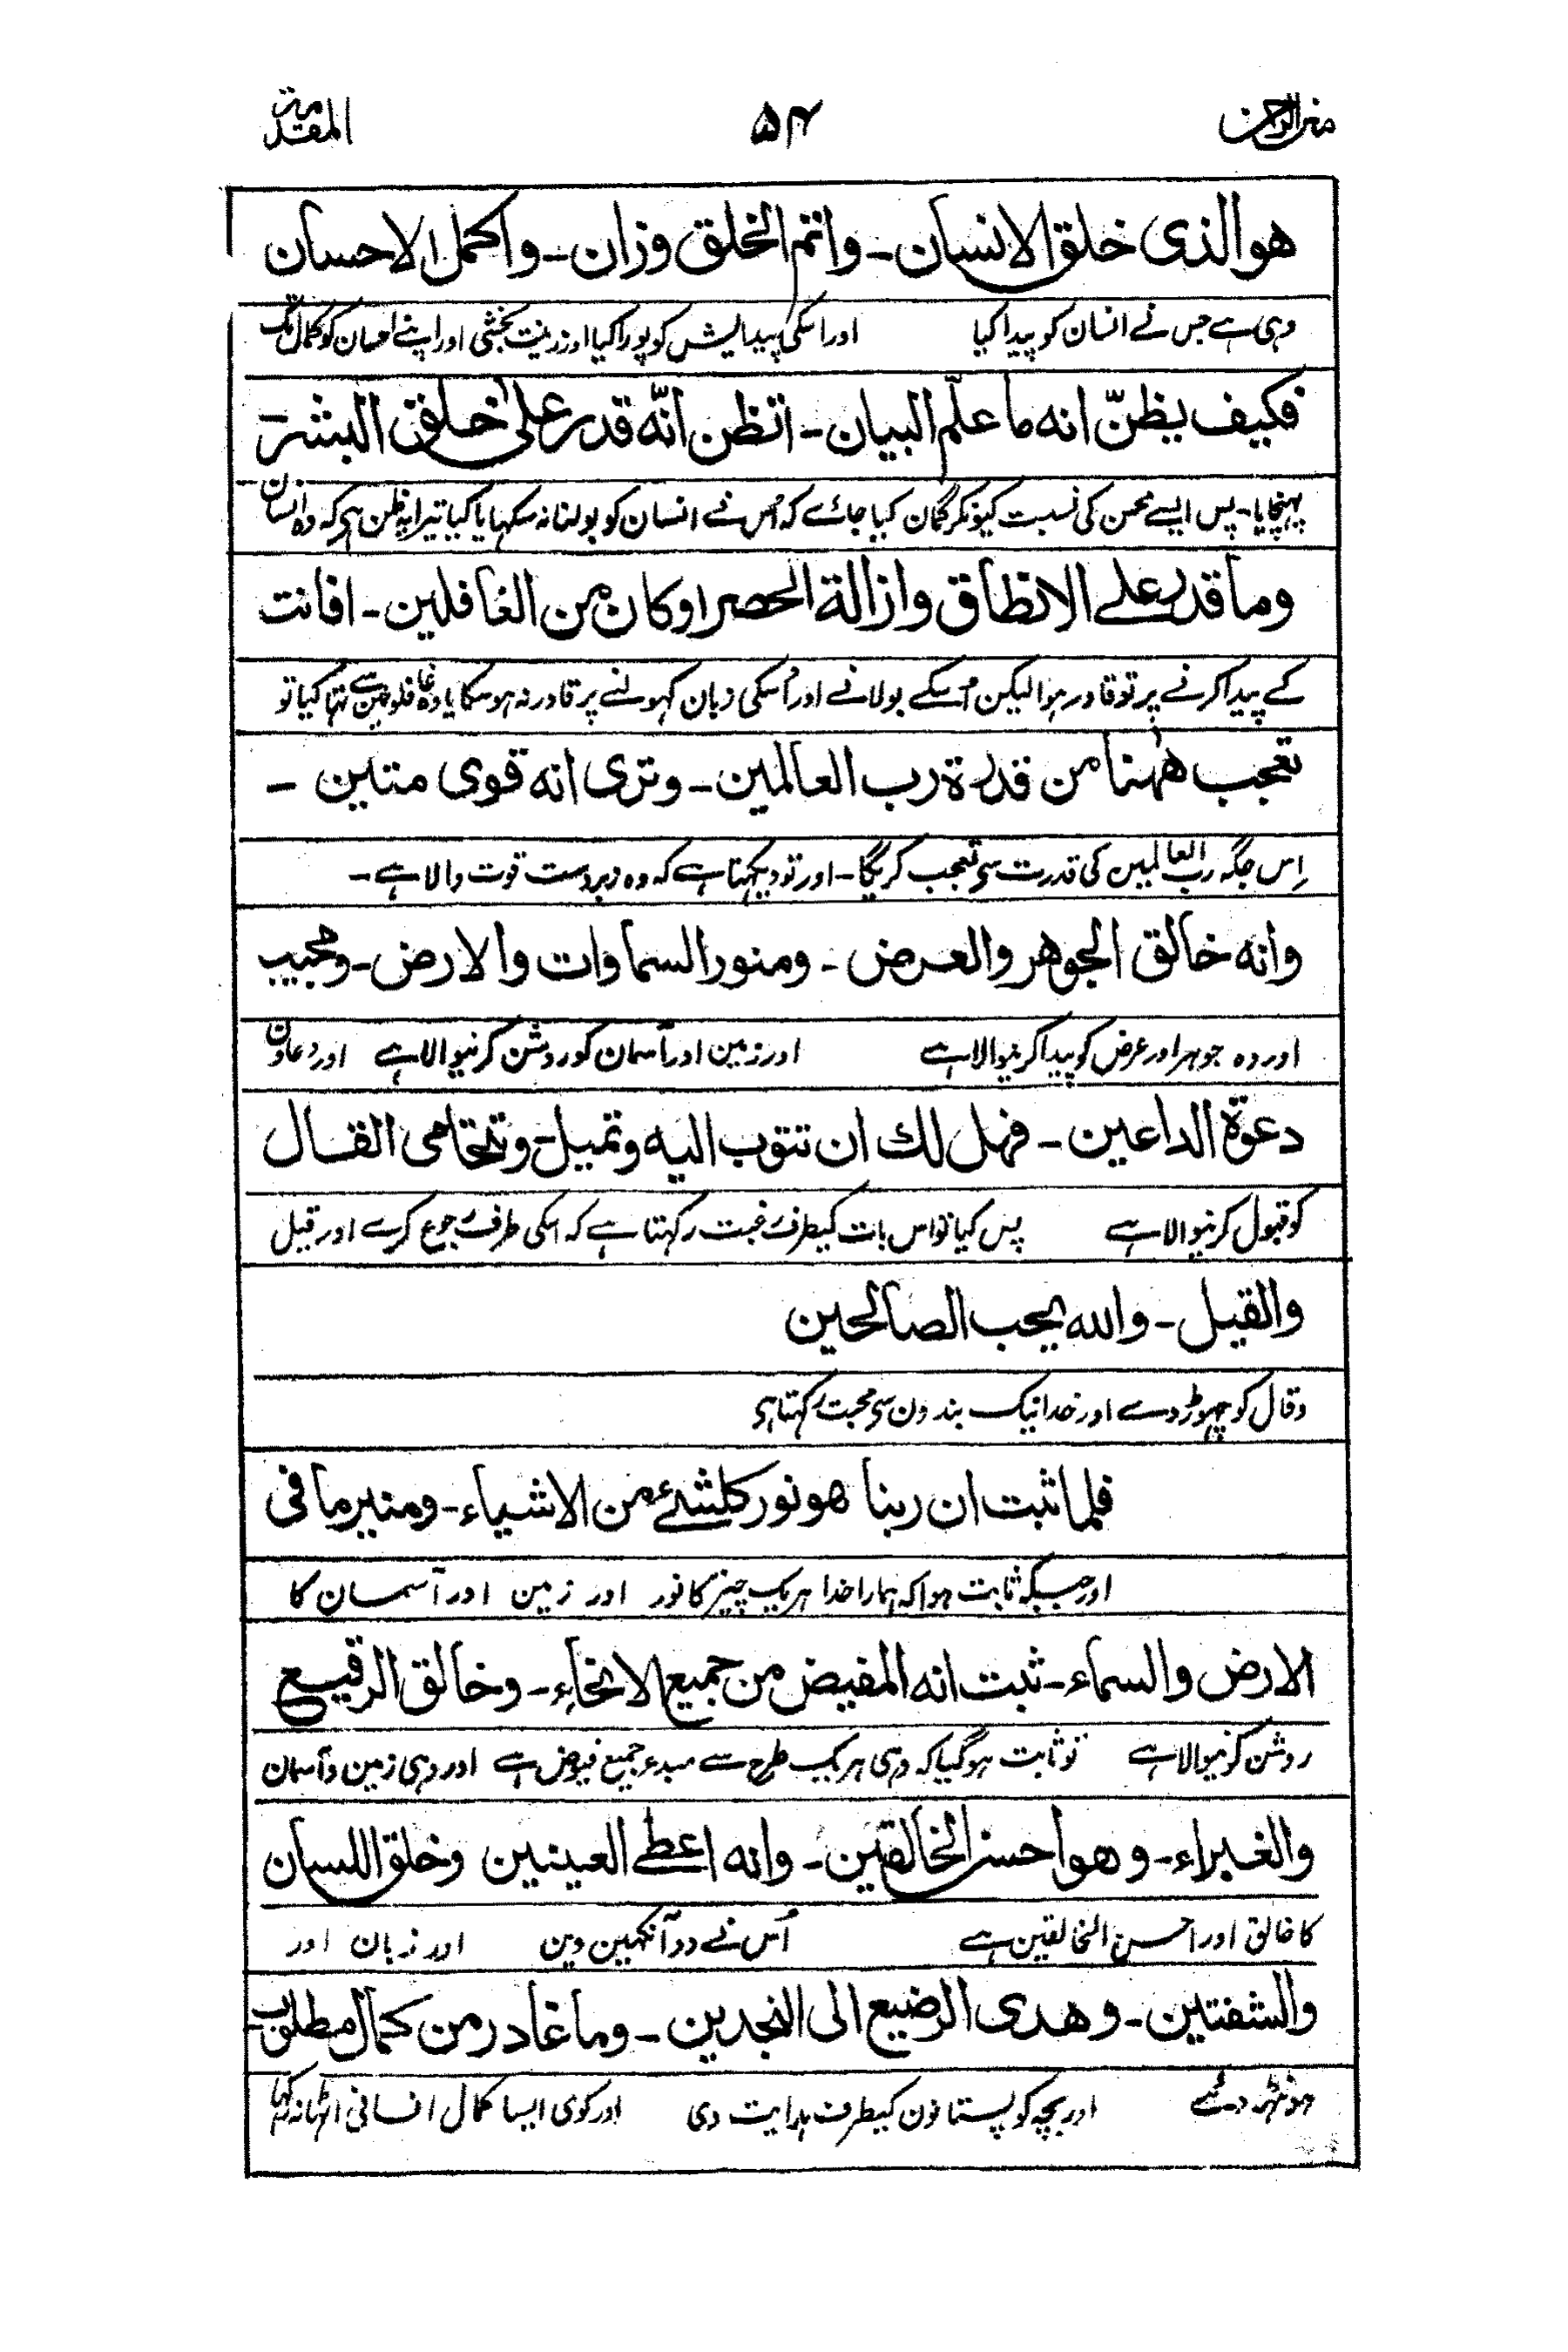 منن الرحمن ۵۴ المقدمة
هو الذى خلق الانسان ـ واتم الخلق وزان ـ واكمل الاحسان
وہی ہے جس نے انسان کو پیدا کیا اور اسکی پیدایش کو پورا کیا اور زینت بخشی اور اپنے احسان کو کمال تک
فكيف يظنّ انه ما علّم البيان ـ اتظن انّه قدر على خلق البشر ـ
پہنچایا ـ پس ایسے محسن کی نسبت کیونکر گمان کیا جائے کہ اُس نے انسان کو بولنا نہ سکہایا کیا تیرا یہ ظن ہی کہ وہ انسان
وما قدر على الانطاق وازالة الحصر او كان من الغافلين ـ افانت
کے پیدا کرنے پر تو قادر ہوا لیکن اُسکے بولانے اور اُسکی زبان کہولنے پر قادر نہ ہو سکا یا وہ غافلوں میں سے تہا کیا تو
تعجب هٰهنا من قدرة رب العالمين ـ وترى انه قوى متين ـ
اِس جگہ رب العالمین کی قدرت سی تعجب کریگا ـ اور تو دیکہتا ہے کہ وہ زبردست قوت والا ہے ـ
وانه خالق الجوهر والعرض ـ ومنور السماوات والارض ـ ومجيب
اور وہ جوہر اور عرض کو پیدا کرنیوالا ہے اور زمین اور آسمان کو روشن کرنیوالا ہے اور دعاون
دعوة الداعين ـ فهل لك ان تتوب اليه وتميل ـ وتتحامى القال
کو قبول کرنیوالا ہے پس کیا تو اس بات کیطرف رغبت رکہتا ہے کہ اسکی طرف رجوع کرے اور قیل
والقيل ـ والله يحب الصالحين
و قال کو چہوڑ دے اور خدا نیک بندون سی محبت رکہتا ہی
فلما ثبت ان ربنا هو نور كلشئ من الاشياء ـ ومنير ما فى
اور جبکہ ثابت ہوا کہ ہمارا خدا ہریک چیز کا نور اور زمین اور آسمان کا
الارض والسماء ـ ثبت انه المفيض من جميع الانحاء ـ وخالق الرقيع
روشن کرنیوالا ہے تو ثابت ہو گیا کہ وہی ہریک طرح سے مبدء جمیع فیوض ہے اور وہی زمین و آسمان
والغبراء ـ وهو احسن الخالقين ـ وانه اعطى العينين وخلق اللسان
کا خالق اور احسن الخالقین ہے اُس نے دو آنکہین دین اور زبان اور
والشفتين ـ وهدى الرضيع الى النجدين ـ وما غادر من كمال مطلوب ـ
ہونٹہ دئے اور بچہ کو پستانون کیطرف ہدایت دی اور کوی ایسا کمال انسانی اٹہا نہ رکہا